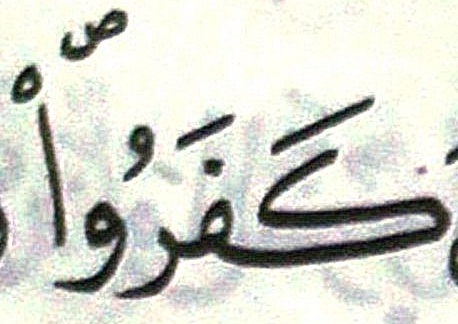 كَفَرُوا۟ ۖ